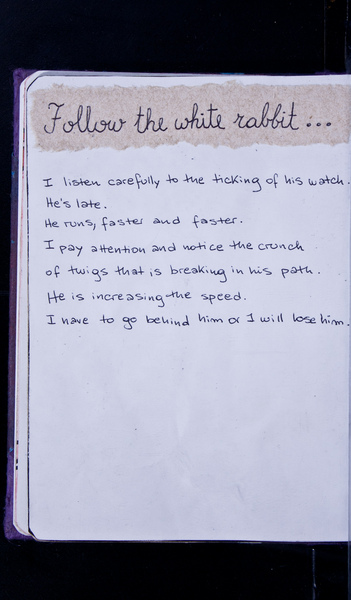 Follow the white rabbit...
I listen carefully to the ticking of his watch.
He's late.
He runs, faster and faster.
I pay attention and notice the crunch
of twigs that is breaking in his path.
He is increasing the speed.
I have to go behind him or I will lose him.